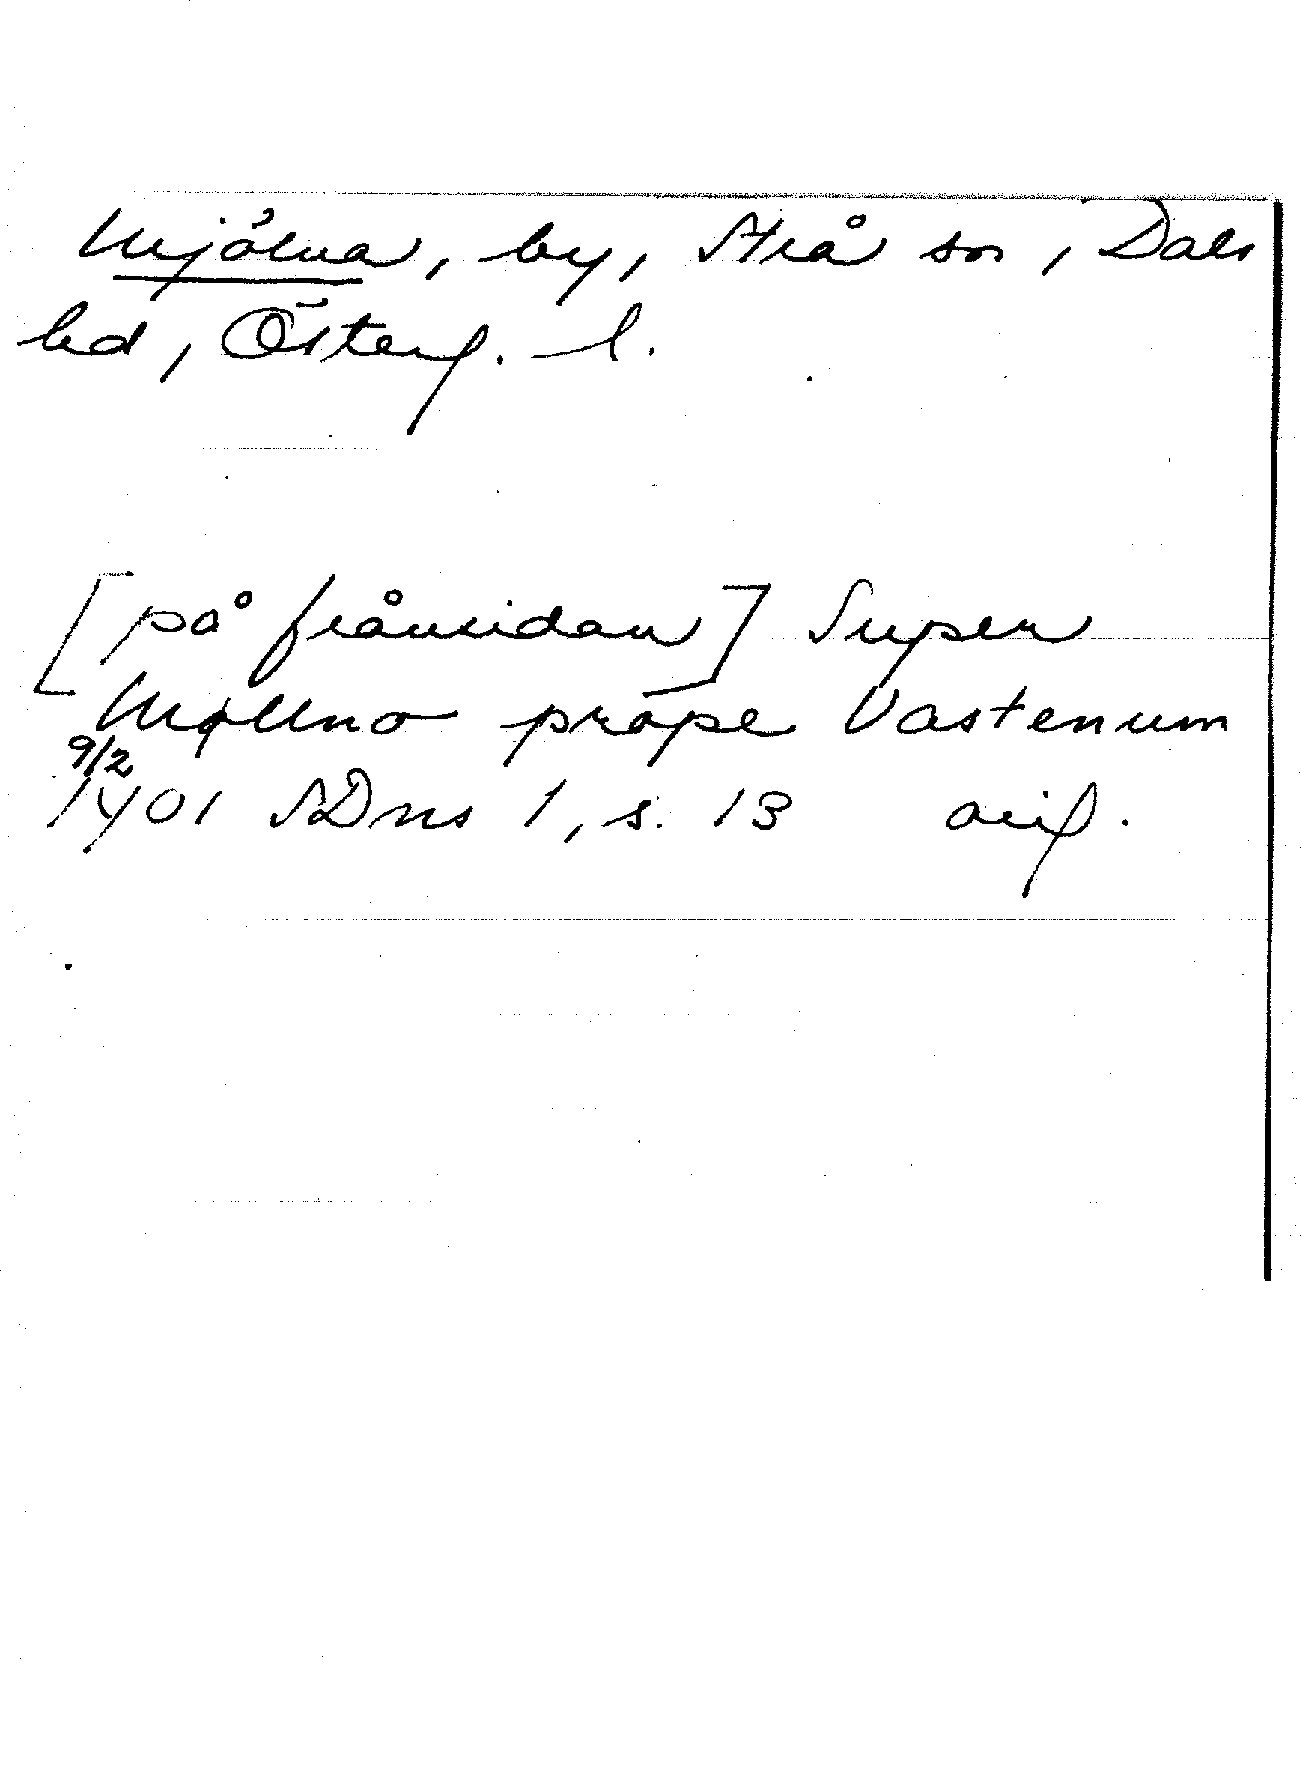 Mjölna, by, Strå sn, Dals
hd, Österg. l.
[på frånsidan] Super
Møllno prope Vastenum
9/2
1401 SDns 1, s. 13 orig.